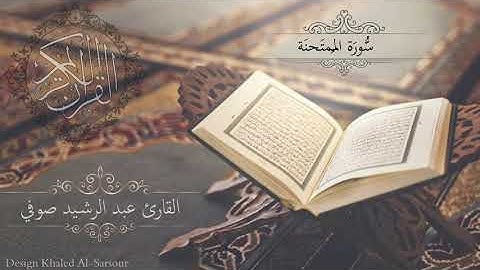 سُورَة الممتَحنَة
القرآن الكريم
القارئ عبد الرشيد صوفي
Design Khaled Al-Sarsour